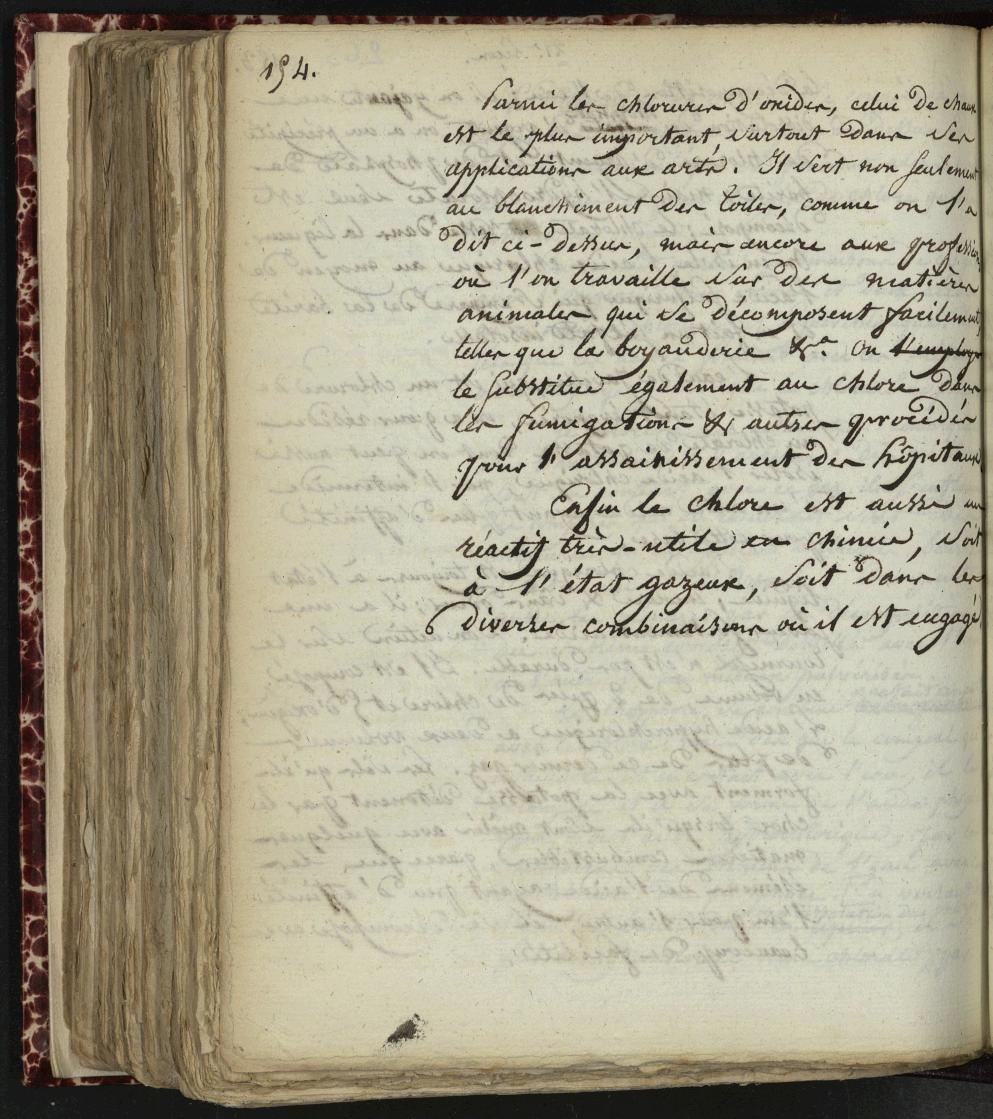 194.
Parmi les chlorures d'oxides, celui de chaux
est le plus important, surtout dans ses
applications aux arts. Il sert non seulement
au blanchiment des toiles, comme on l'a
dit ci-dessus, mais encore aux professions
où l'on travaille sur des matières
animales qui se décomposent facilement,
telles que la boyauderie &a. On l'employe
le substitue également au chlore dans
les fumigations & autres procédés
pour l'assainissement des hôpitaux
Enfin le chlore est aussi un
réactif très-utile en chimie, soit
à l'état gazeux, soit dans les
diverses combinaisons où il est engagé